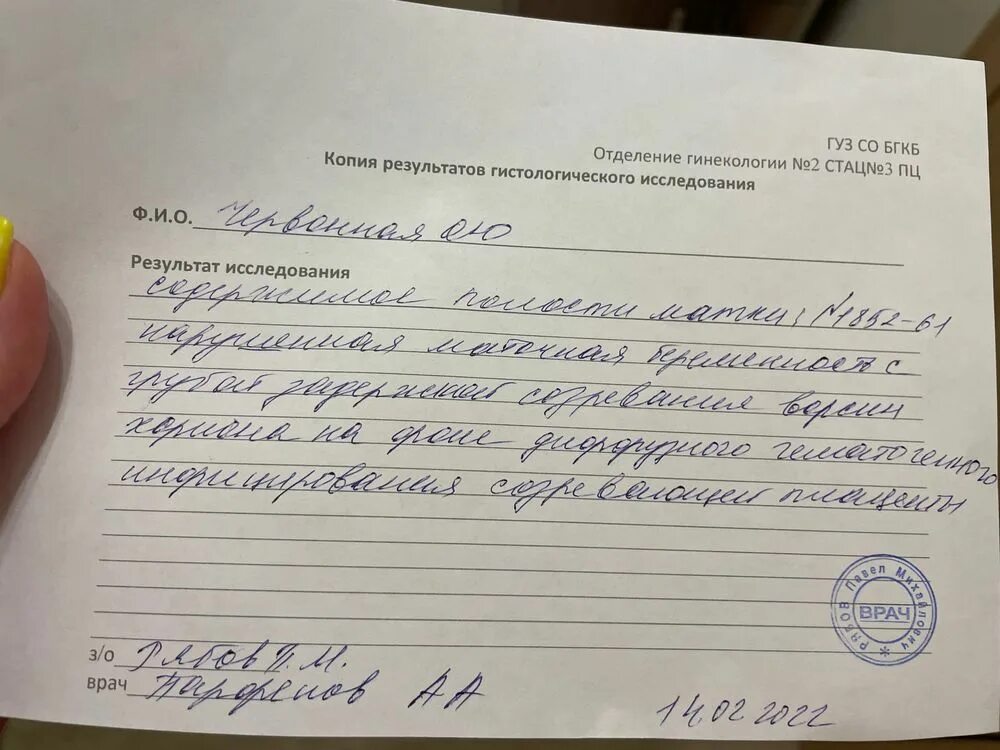 ГУЗ СО БГКБ
Отделение гинекологии №2 СТАЦ№3 ПЦ
Копия результатов гистологического исследования
Ф.И.О. Червонная ОЮ
Результат исследования
содержимое полости матки; №1852-61
нарушенная маточная беременность с
грубой задержкой созревания ворсин
хориона на фоне диффузного гематогенного
инфицирования созревающей плаценты
з/о Рябов П.М.
врач Парфенов АА
14.02 2022
РЯБОВ Павел Михайлович
ВРАЧ